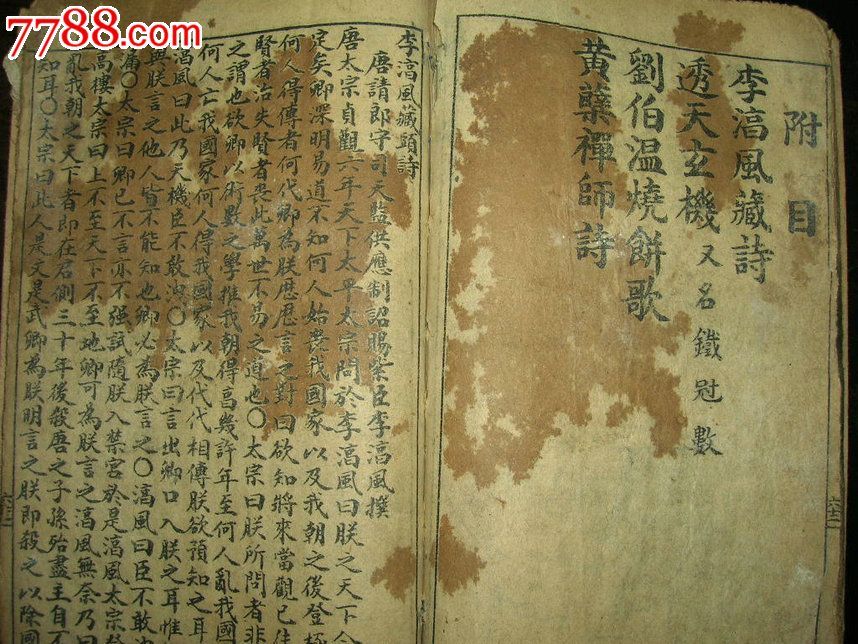 7788.com
附目
李淳風藏詩
透天玄機 又名鐵冠數
劉伯温燒餅歌
黄蘗禪師詩
六十二
李淳風藏頭詩
唐請郎守司天監供應制詔賜紫臣李淳風撰
唐太宗貞觀六年天下太平太宗問於李淳風曰朕之天下今
定矣卿深明易道不知何人始喪我國家以及我朝之後登極
何人得傳者何代卿為朕歷歷言之對曰欲知將來當觀已往
賢者治失賢者喪此萬世不易之道也〇太宗曰朕所問者非
之謂也欲卿以術數之學推我朝得享幾許年至何人亂我國
何人亡我國家何人得我國家以及代代相傳朕欲預知之耳
淳風曰此乃天機臣不敢洩〇太宗曰言出卿口入朕之耳惟
與朕言之他人皆不能知也卿必為朕言之〇淳風曰臣不敢洩
漏〇太宗曰卿已不言亦不强試隨朕入禁宮於是淳風太宗登
高樓太宗曰上不至天下不至地卿可為朕言之淳風無奈乃曰
亂我朝之天下者即在君側三十年後殺唐之子孫殆盡主自不
知耳〇太宗曰此人是文是武卿為朕明言之朕即殺之以除國
六十二